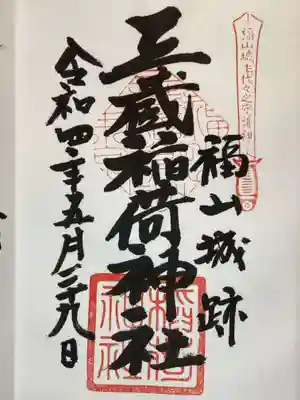 福山城主代々之
福山城跡
三蔵稲荷神社
令和四年五月二十九日